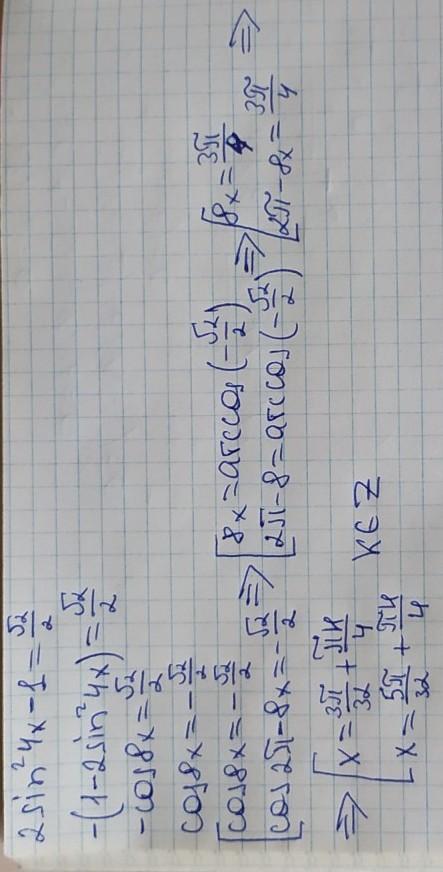 2sin²4x-1=√2/2
-(1-2sin²4x)=√2/2
-cos8x=√2/2
cos8x=-√2/2
[cos8x=-√2/2
[cos2π-8x=-√2/2 ⇒ [8x=arccos(-√2/2)
[2π-8=arccos(-√2/2) ⇒ [8x=3π/4
[2π-8x=3π/4 ⇒
⇒ [x=3π/32+πk/4
[x=5π/32+πk/4 k∈Z